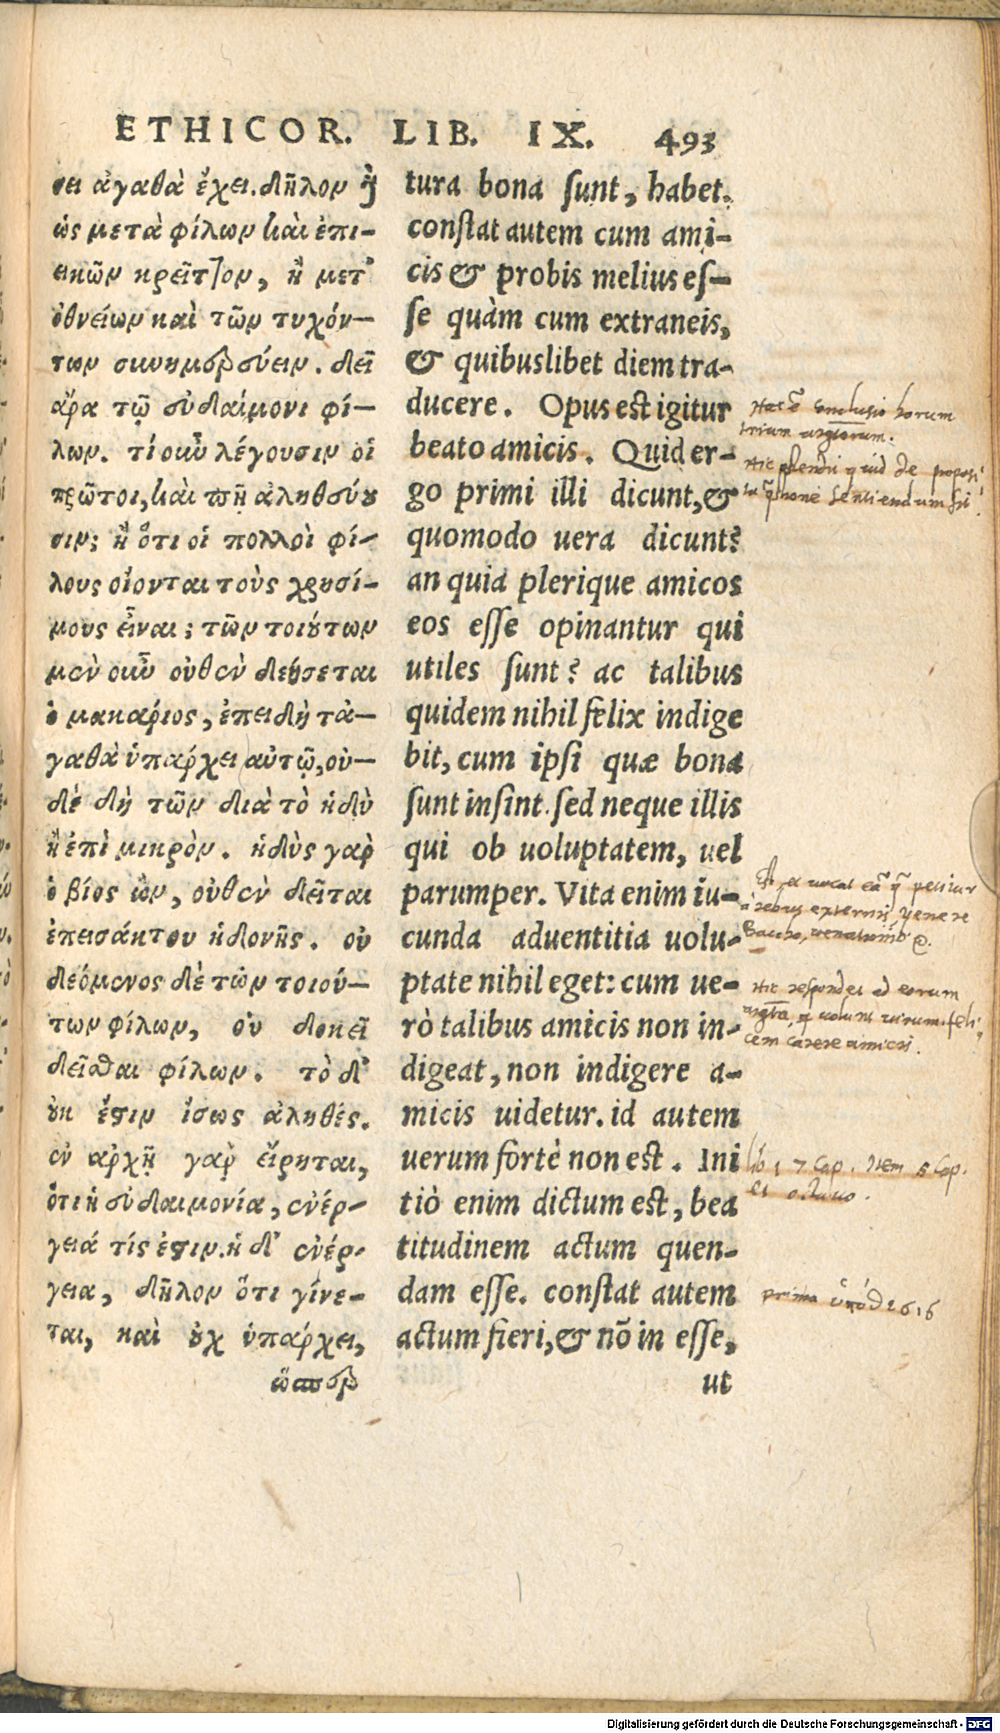 ETHICOR. LIB. IX. 493
σει ἀγαθὰ ἔχει. δῆλον δ'
ὡς μετὰ φίλων καὶ ἐπι-
εικῶν κρεῖττον, ἢ μετ'
ὀθνείων καὶ τῶν τυχόν-
των συνημερεύειν. δεῖ
ἄρα τῷ εὐδαίμονι φί-
λων. τί οὖν λέγουσιν οἱ
πρῶτοι, καὶ πῇ ἀληθεύου
σιν; ἢ ὅτι οἱ πολλοὶ φί-
λους οἴονται τοὺς χρησί-
μους εἶναι; τῶν τοιούτων
μὲν οὖν οὐθὲν δεήσεται
ὁ μακάριος, ἐπειδὴ τἀ-
γαθὰ ὑπάρχει αὐτῷ, οὐ-
δὲ δὴ τῶν διὰ τὸ ἡδὺ
ἢ ἐπὶ μικρὸν. ἡδὺς γὰρ
ὁ βίος ὢν, οὐθὲν δεῖται
ἐπεισάκτου ἡδονῆς. οὐ
δεόμενος δὲ τῶν τοιού-
των φίλων, οὐ δοκεῖ
δεῖσθαι φίλων. τὸ δ'
οὐκ ἔστιν ἴσως ἀληθές.
ἐν ἀρχῇ γὰρ εἴρηται,
ὅτι ἡ εὐδαιμονία, ἐνέρ-
γειά τίς ἐστιν. ἡ δ' ἐνέρ-
γεια, δῆλον ὅτι γίνε-
ται, καὶ οὐχ ὑπάρχει,
ὥσπερ
tura bona sunt, habet.
constat autem cum ami-
cis & probis melius es-
se quàm cum extraneis,
& quibuslibet diem tra-
ducere. Opus est igitur
beato amicis. Quid er-
go primi illi dicunt, &
quomodo uera dicunt?
an quia plerique amicos
eos esse opinantur qui
utiles sunt? ac talibus
quidem nihil felix indige
bit, cum ipsi quæ bona
sunt insint. sed neque illis
qui ob uoluptatem, uel
parumper. Vita enim iu-
cunda aduentitia uolu-
ptate nihil eget: cum ue-
rò talibus amicis non in-
digeat, non indigere a-
micis uidetur. id autem
uerum fortè non est. Ini
tiò enim dictum est, bea
titudinem actum quen-
dam esse. constat autem
actum fieri, & nō in esse,
ut
Haec ē conclusio horum
trium argtorum.
Hic quid de proposi
sentiendum sit.
petitur
à rebus externis, Venere
Baccho,
Hic respondet ad eorum
argta, uolunt uirum feli
cem carere amicis.
lib 1 7 Cap. Item 8 Cap.
et octauo.
prima